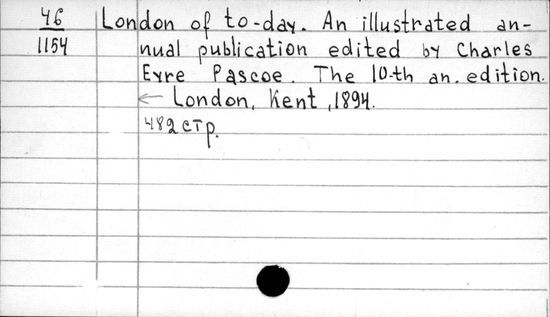 46 London of to-day. An illustrated an-
1154 nual publication edited by Charles
Eyre Pascoe. The 10-th an. edition.
← London, Kent, 1894.
482 стр.